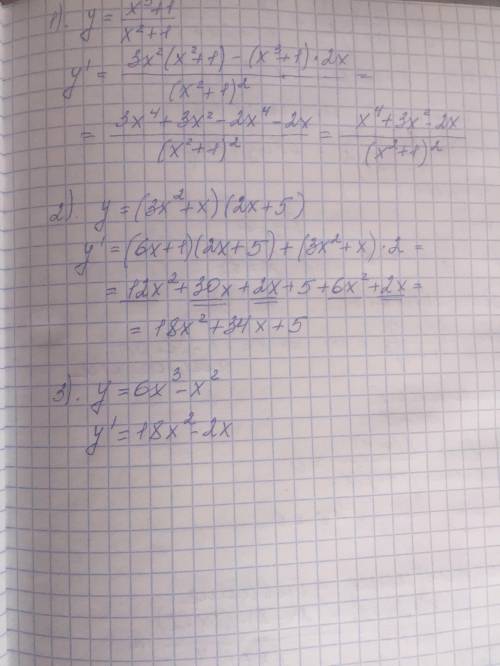 1). y = (x³+1)/(x²+1)
y' = (3x²(x²+1) - (x³+1)·2x)/(x²+1)² =
= (3x⁴+3x²-2x⁴-2x)/(x²+1)² = (x⁴+3x²-2x)/(x²+1)²
2). y = (3x²+x)(2x+5)
y' = (6x+1)(2x+5) + (3x²+x)·2 =
= 12x²+30x+2x+5+6x²+2x =
= 18x²+34x+5
3). y = 6x³-x²
y' = 18x²-2x